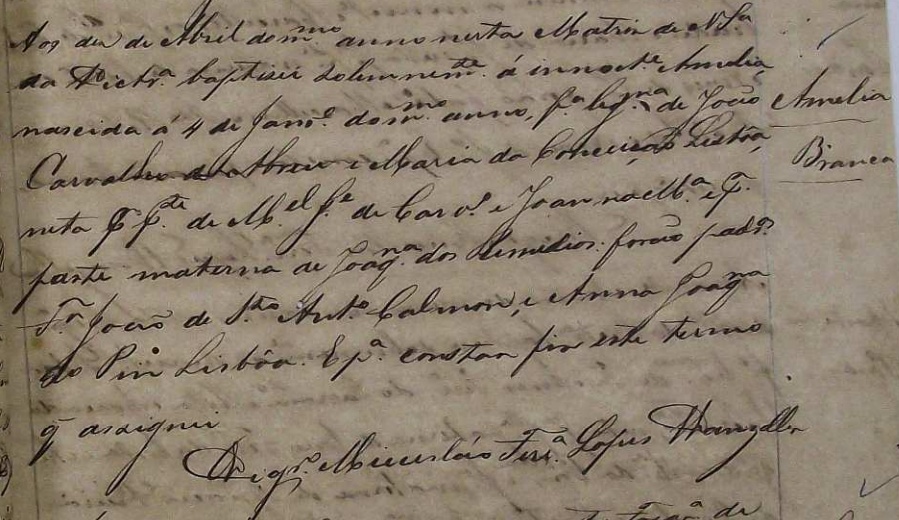 Aos dez de Abril do m.mo anno nesta Matriz de N. S.ra
da Victr.a baptisei solemnem.te á innoc.te Amelia
nascida á 4 de Janr.o do m.mo anno, f.a leg.ma de João
Carvalho de Abreu e Maria da Conceição Lisbôa,
neta p. p.te de M.el J.e de Carv.o e Joanna M.a e p.
parte materna de Joaq.na dos Remedios: forão padr.s
João de S.to Ant.o Calmon, e Anna Joaq.na
do Pin Lisbôa. E p.a constar fiz este termo
q assignei
O Vigr.o Miceslão Ferr.a Lopes Wanzeller
Amelia
Branca